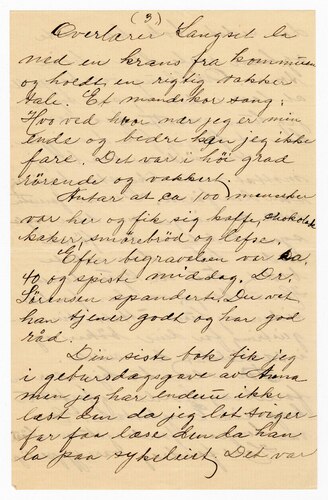 (3)
Overlærer Langset la
ned en krans fra kommunen
og holdt en rigtig vakker
tale. Et mandskor sang:
Hvo ved hvor nær jeg er min
ende og bedre kan jeg ikke
fare. Det var i höi grad
rörende og vakkert.
Antar at ca 100 mennesker
var her og fik sig kaffe, chokolade
kaker, smörebröd og lefse.
Efter begravelsen var ca.
40 og spiste middag. Dr.
Sörensen spandert. Du vet
han tjener godt og har god
råd.
Din siste bok fik jeg
i geburdsdagsgave av Anna
men jeg har endnu ikke
læst den da jeg lot Sorger-
far faa læse den da han
la paa sykeleiet. Det var